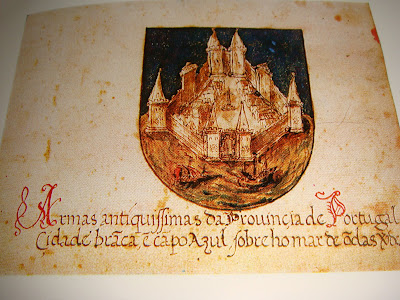 Armas antiquissimas da Prouincia de Portugal
Cidade branca ẽ capo Azul sobre ho mar de ōdas